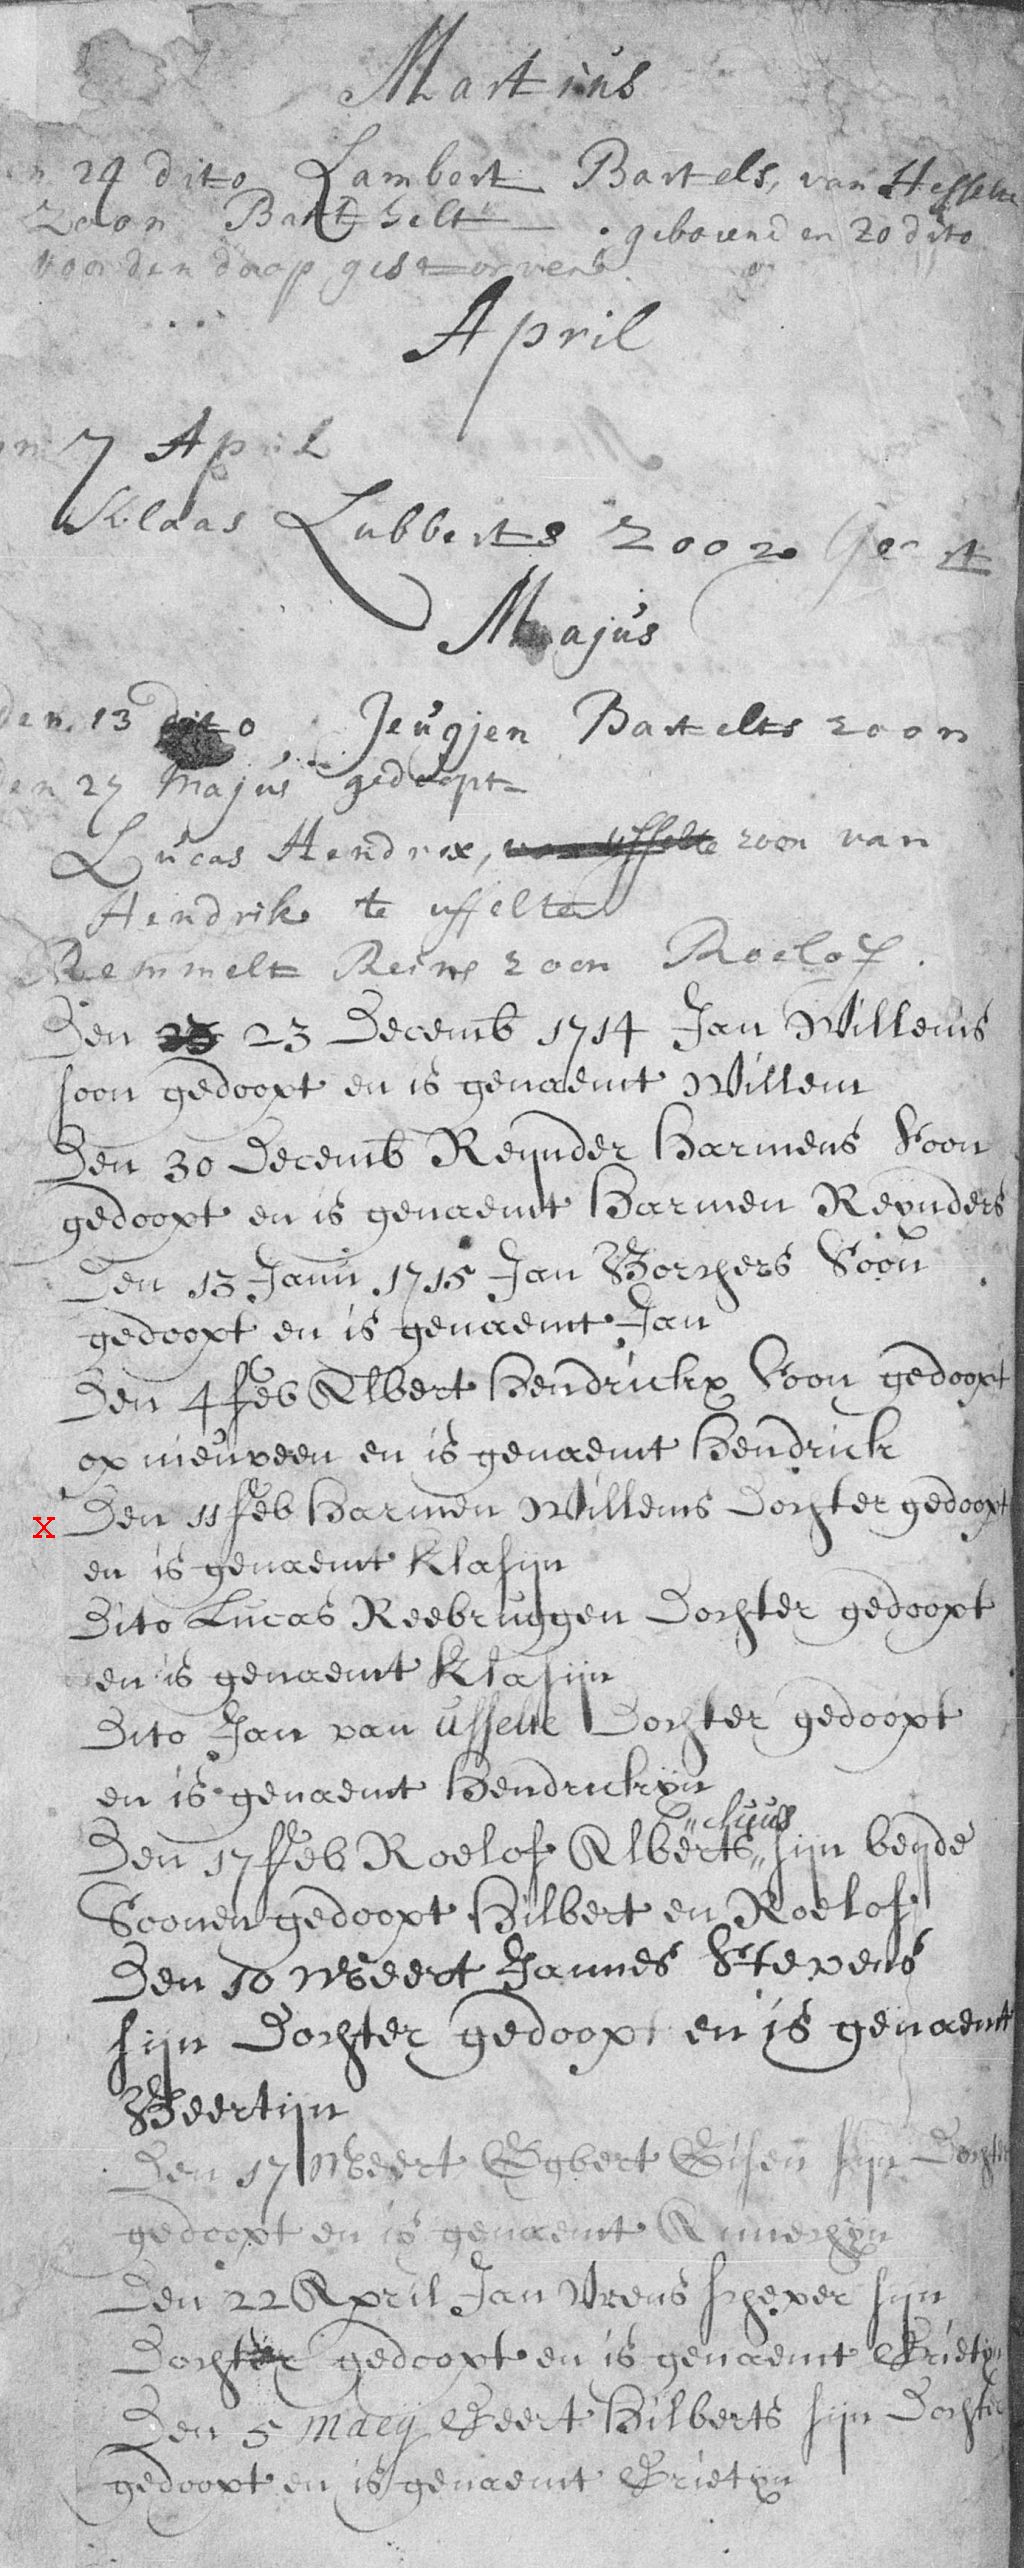 Martius
29 dito Lambert Bartels, van Hesselte
zoon Barthelt geboren den 20 dito
voor den doop gestorven
April
7 April
Klaas Lubberts zoon Geert
Majus
den 13 dito Jeugjen Bartelts zoon
den 27 Majus gedoopt
Lucas Hendrix, van uffelte zoon van
Hendrik te uffelte
Remmelt Reins zoon Roelof.
Den 23 Decemb 1714 Jan Willems
soon gedoopt en is genaemt Willem
Den 30 Decemb Reynder Harmens Soon
gedoopt en is genaemt Harmen Reynders
Den 13 Janu 1715 Jan Borchers Soon
gedoopt en is genaemt Jan
Den 4 Feb Albert Hendrickx Soon gedoopt
op nieuveen en is genaemt Hendrick
x Den 11 Feb Harmen Willems Dochter gedoopt
en is genaemt Klasijn
Dito Lucas Reebruggen Dochter gedoopt
en is genaemt Klasijn
Dito Jan van Uffelte Dochter gedoopt
en is genaemt Hendrickyn
Den 17 Feb Roelof Alberts sijn beyde
Soonen gedoopt Hilbert en Roelof
Den 10 Meert Jannes Stevens
sijn Dochter gedoopt en is genaemt
Geertijn
Den 17 Meert Egbert sijn Dochter
gedoopt en is genaemt Annechyn
Den 22 April Jan Vrens scheper sijn
Dochter gedoopt en is genaemt Grietyn
Den 5 Maey Geert Hilberts sijn Dochter
gedoopt en is genaemt Grietyn